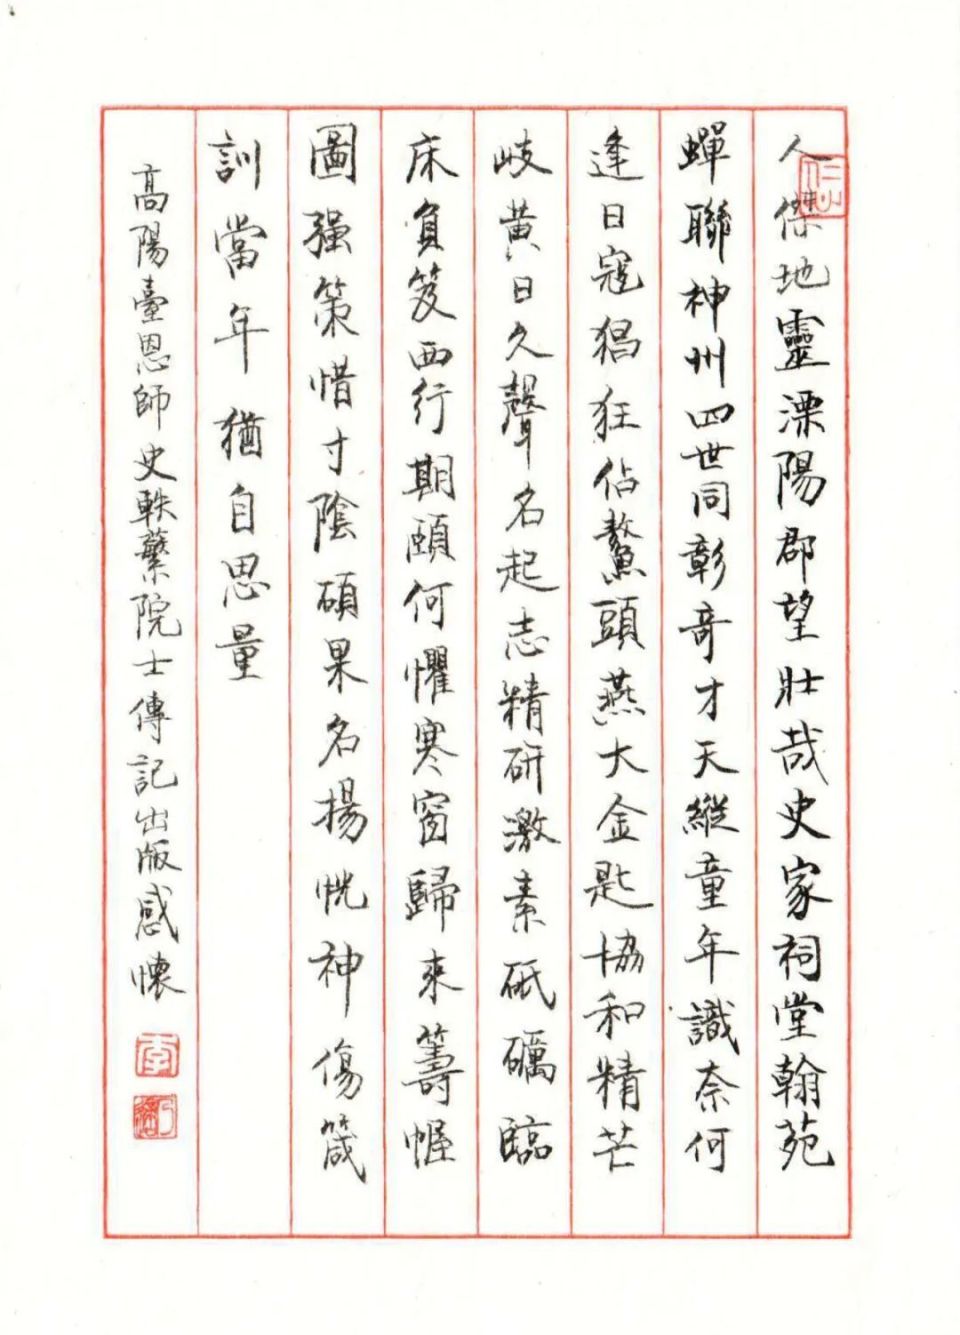 人傑地靈溧陽郡望壯哉史家祠堂翰苑
蟬聯神州四世同彰奇才天縱童年識奈何
逢日寇猖狂佔鰲頭燕大金匙協和精芒
岐黃日久聲名起志精研激素砥礪臨
床負笈西行期頤何懼寒窗歸來籌幄
圖强策惜寸陰碩果名揚恍神傷箴
訓當年猶自思量
高陽臺恩師史軼蘩院士傳記出版感懷